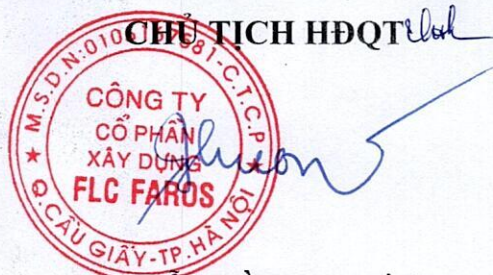 CHỦ TỊCH HĐQT
M.S.D.N:010
81-C.T.C.P
CÔNG TY
CỔ PHẦN
XÂY DỰNG
FLC FAROS
Q.CẦU GIẤY-TP.HÀ NỘI